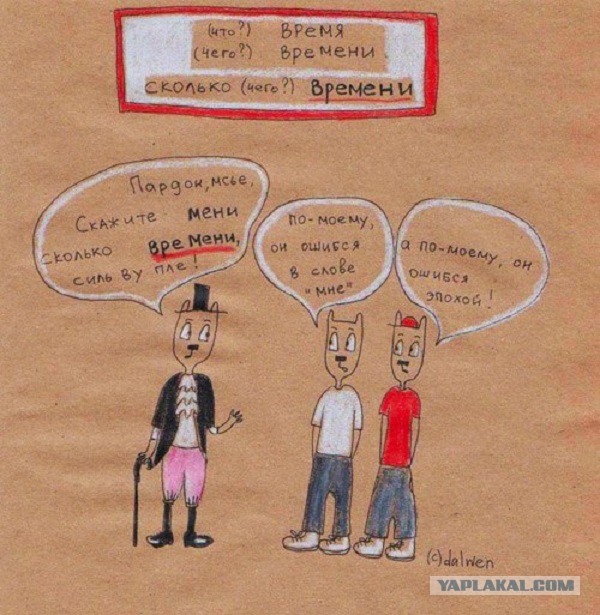 (что?) Время
(чего?) Времени
сколько (чего?) Времени
Пардон, мсье,
Скажите мени
сколько времени,
силь ву пле!
по-моему,
он ошибся
в слове
"мне"
а по-моему, он
ошибся
эпохой!
(c)dalwen
YAPLAKAL.COM